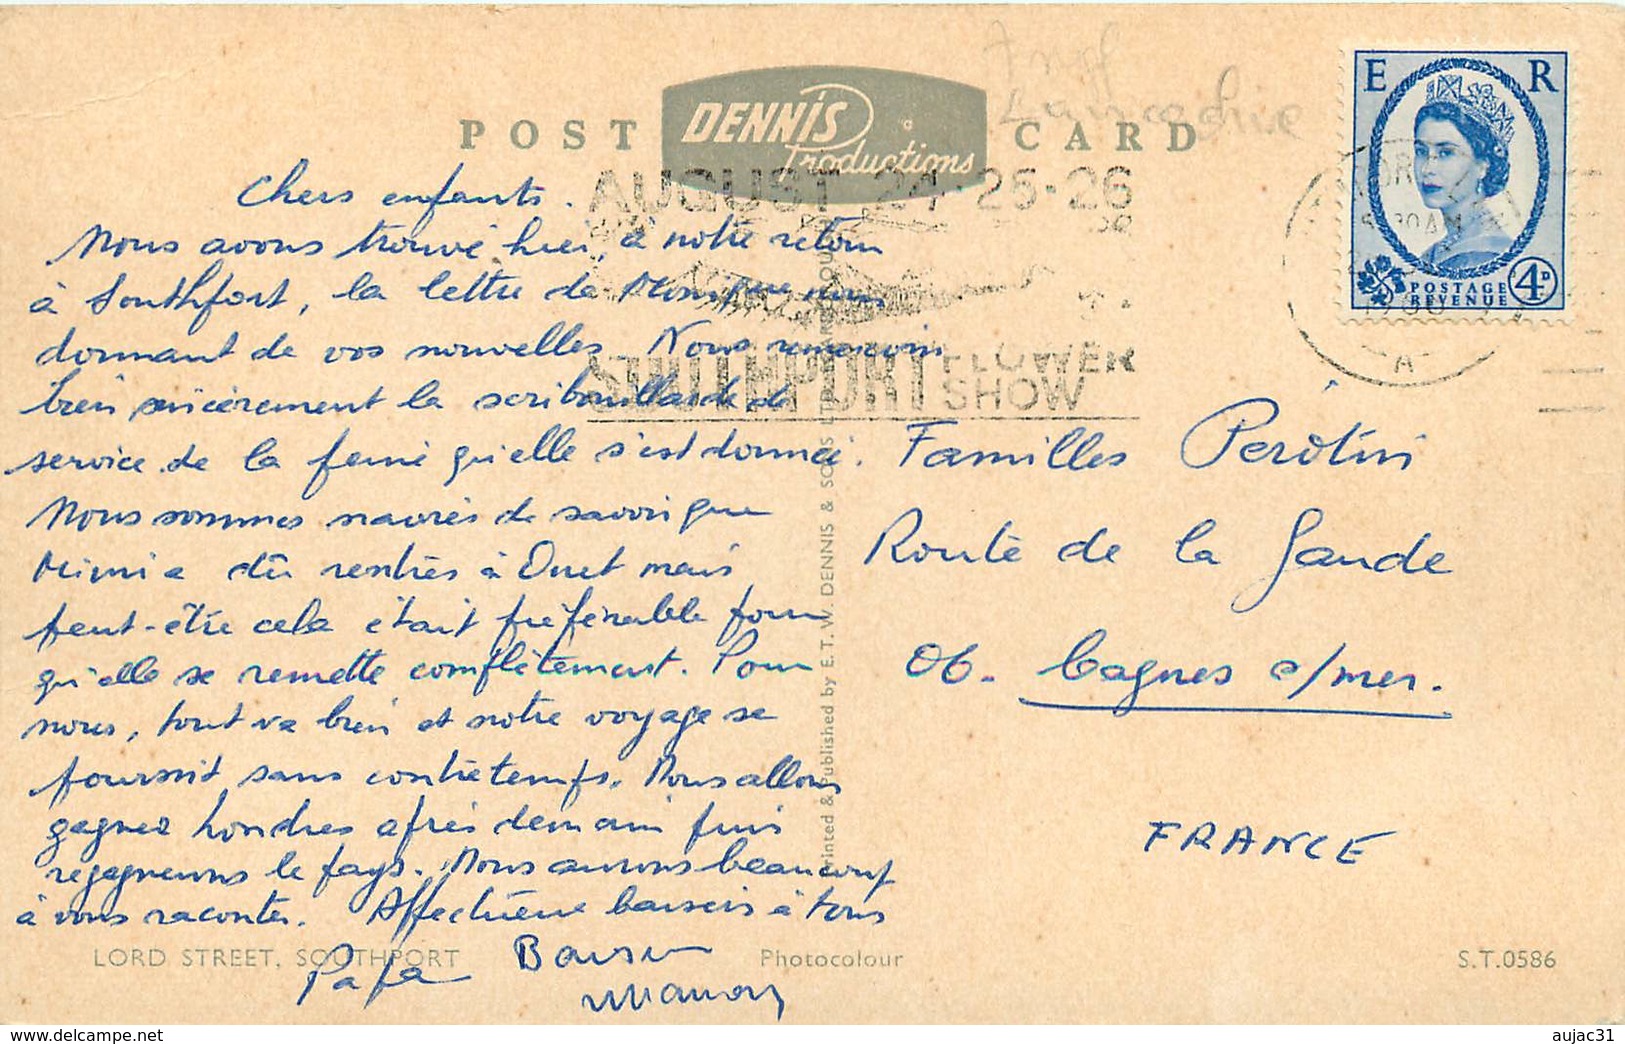 Angl
Lancashire
POST CARD
DENNIS
Productions
E R
POSTAGE
REVENUE
4D
AUGUST 24-25-26
SOUTHPORT FLOWER
SHOW
A
Chers enfants.
Nous avons trouvé hier, à notre retour
à Southport, la lettre de Monique nous
donnant de vos nouvelles. Nous remercions
bien sincèrement la scribouillarde de
service de la peine qu'elle s'est donnée.
Nous sommes navrés de savoir que
Mimi a dû rentrer à mais
peut-être cela était préférable pour
qu'elle se remette complètement. Pour
nous, tout va bien et notre voyage se
poursuit sans contretemps. Nous allons
gagner Londres après demain puis
regagnerons le pays. Nous aurons beaucoup
à vous raconter. Affectueux baisers à tous
Papa
Baisers
Manou
Familles Perotini
Route de la Gaude
06. Cagnes s/mer.
FRANCE
Printed & Published by E. T. W. DENNIS & SONS LTD.
LORD STREET, SOUTHPORT
Photocolour
S.T.0586
www.delcampe.net
aujac31